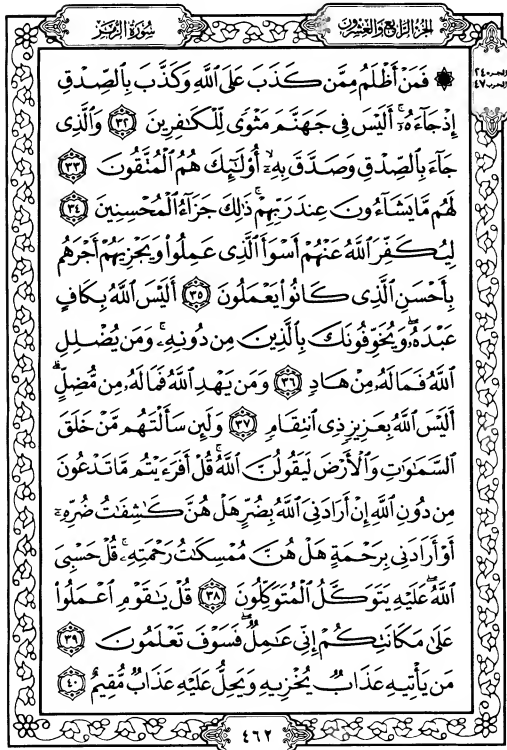 الجزء الرابع والعشرون
سورة الزمر
الجزء ٢٤
الحزب ٤٧
۞ فَمَنْ أَظْلَمُ مِمَّن كَذَبَ عَلَى اللَّهِ وَكَذَّبَ بِالصِّدْقِ
إِذْ جَاءَهُ أَلَيْسَ فِي جَهَنَّمَ مَثْوًى لِّلْكَافِرِينَ ٣٢ وَالَّذِي
جَاءَ بِالصِّدْقِ وَصَدَّقَ بِهِ أُوْلَٰئِكَ هُمُ الْمُتَّقُونَ ٣٣
لَهُم مَّا يَشَاءُونَ عِندَ رَبِّهِمْ ذَٰلِكَ جَزَاءُ الْمُحْسِنِينَ ٣٤
لِيُكَفِّرَ اللَّهُ عَنْهُمْ أَسْوَأَ الَّذِي عَمِلُوا وَيَجْزِيَهُمْ أَجْرَهُم
بِأَحْسَنِ الَّذِي كَانُوا يَعْمَلُونَ ٣٥ أَلَيْسَ اللَّهُ بِكَافٍ
عَبْدَهُ وَيُخَوِّفُونَكَ بِالَّذِينَ مِن دُونِهِ وَمَن يُضْلِلِ
اللَّهُ فَمَا لَهُ مِنْ هَادٍ ٣٦ وَمَن يَهْدِ اللَّهُ فَمَا لَهُ مِن مُّضِلٍّ
أَلَيْسَ اللَّهُ بِعَزِيزٍ ذِي انتِقَامٍ ٣٧ وَلَئِن سَأَلْتَهُم مَّنْ خَلَقَ
السَّمَاوَاتِ وَالْأَرْضَ لَيَقُولُنَّ اللَّهُ قُلْ أَفَرَءَيْتُم مَّا تَدْعُونَ
مِن دُونِ اللَّهِ إِنْ أَرَادَنِيَ اللَّهُ بِضُرٍّ هَلْ هُنَّ كَاشِفَاتُ ضُرِّهِ
أَوْ أَرَادَنِي بِرَحْمَةٍ هَلْ هُنَّ مُمْسِكَاتُ رَحْمَتِهِ قُلْ حَسْبِيَ
اللَّهُ عَلَيْهِ يَتَوَكَّلُ الْمُتَوَكِّلُونَ ٣٨ قُلْ يَا قَوْمِ اعْمَلُوا
عَلَىٰ مَكَانَتِكُمْ إِنِّي عَامِلٌ فَسَوْفَ تَعْلَمُونَ ٣٩
مَن يَأْتِيهِ عَذَابٌ يُخْزِيهِ وَيَحِلُّ عَلَيْهِ عَذَابٌ مُّقِيمٌ ٤٠
٤٦٢